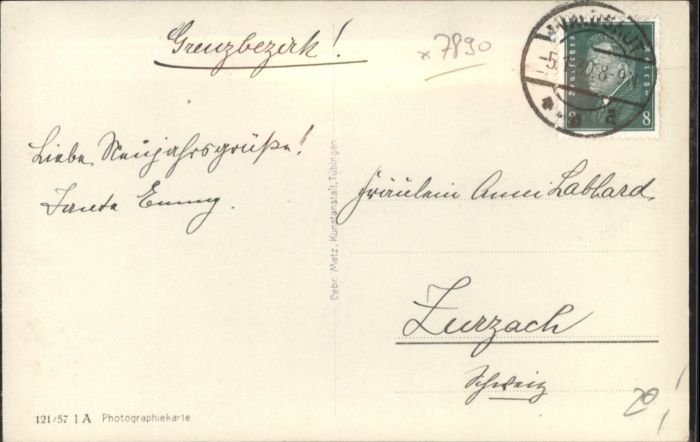 Grenzbezirk!
x 7890
WALDSHUT
5. 30.8-9
Deutsches Reich
8 8
Liebe Neujahrsgrüße!
Tante Emmy.
Gebr. Metz, Kunstanstalt, Tübingen
Fräulein Anni Labhard,
Zurzach
Schweiz
121/57 I A Photographiekarte